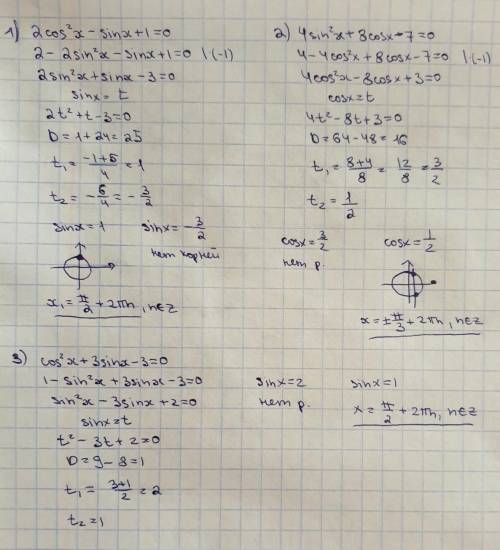 1) 2cos²x - sinx + 1 = 0
2 - 2sin²x - sinx + 1 = 0 | (-1)
2sin²x + sinx - 3 = 0
sinx = t
2t² + t - 3 = 0
D = 1 + 24 = 25
t₁ = (-1+5)/4 = 1
t₂ = -6/4 = -3/2
sinx = 1 sinx = -3/2
нет корней
x₁ = π/2 + 2πn, n∈Z
2) 4sin²x + 8cosx - 7 = 0
4 - 4cos²x + 8cosx - 7 = 0 | (-1)
4cos²x - 8cosx + 3 = 0
cosx = t
4t² - 8t + 3 = 0
D = 64 - 48 = 16
t₁ = (8+4)/8 = 12/8 = 3/2
t₂ = 1/2
cosx = 3/2 cosx = 1/2
нет р.
x = ±π/3 + 2πn, n∈Z
3) cos²x + 3sinx - 3 = 0
1 - sin²x + 3sinx - 3 = 0
sin²x - 3sinx + 2 = 0
sinx = t
t² - 3t + 2 = 0
D = 9 - 8 = 1
t₁ = (3+1)/2 = 2
t₂ = 1
sinx = 2 sinx = 1
нет р. x = π/2 + 2πn, n∈Z